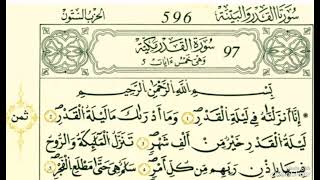 سُورَتَا الْقَدْرِ وَالْبَيِّنَةِ 596 الحزب الستون
سُورَةُ الْقَدْرِ مَكِّيَّة 97
وَهْيَ خَمْسُ ءَايَاتٍ
بِسْمِ اللَّهِ الرَّحْمَٰنِ الرَّحِيمِ
إِنَّا أَنزَلْنَٰهُ فِي لَيْلَةِ الْقَدْرِ وَمَا أَدْرَىٰكَ مَا لَيْلَةُ الْقَدْرِ ثمن
لَيْلَةُ الْقَدْرِ خَيْرٌ مِّنْ أَلْفِ شَهْرٍ تَنَزَّلُ الْمَلَٰٓئِكَةُ وَالرُّوحُ
فِيهَا بِإِذْنِ رَبِّهِم مِّن كُلِّ أَمْرٍ سَلَٰمٌ هِيَ حَتَّىٰ مَطْلَعِ الْفَجْرِ